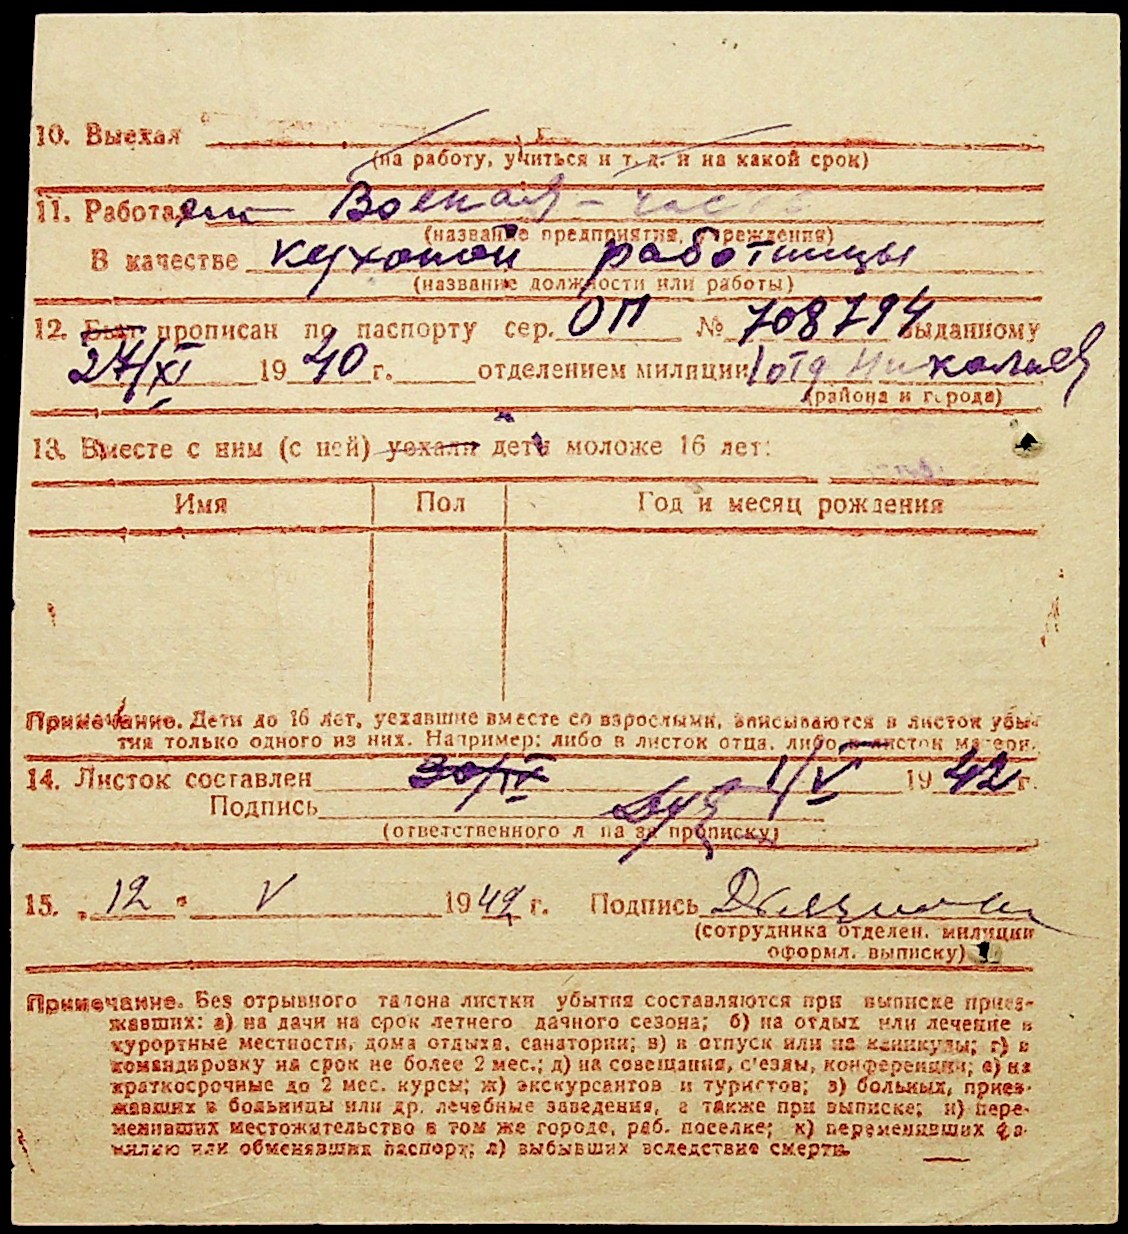 10. Выехал
(на работу, учиться и т. д. и на какой срок)
11. Работает Военая - часть
(название предприятия, учреждения)
В качестве кухоной работницы
(название должности или работы)
12. Был прописан по паспорту сер. ОП № 708794 выданному
27/XI 1940 г. отделением милиции 1 отд Николаев
(района и города)
13. Вместе с ним (с ней) уехали дети моложе 16 лет:
Имя Пол Год и месяц рождения
Примечание. Дети до 16 лет, уехавшие вместе со взрослыми, вписываются в листок убы-
тия только одного из них. Например: либо в листок отца, либо в листок матери.
14. Листок составлен 30/IX 1/V 1942 г.
Подпись
(ответственного лица за прописку)
15. „12" V 1942 г. Подпись
(сотрудника отделен. милиции
оформл. выписку)
Примечание. Без отрывного талона листки убытия составляются при выписке приез-
жавших: а) на дачи на срок летнего дачного сезона; б) на отдых или лечение в
курортные местности, дома отдыха, санатории; в) в отпуск или на каникулы; г) в
командировку на срок не более 2 мес.; д) на совещания, с'езды, конференции; е) на
краткосрочные до 2 мес. курсы; ж) экскурсантов и туристов; з) больных, приез-
жавших в больницы или др. лечебные заведения, а также при выписке; и) пере-
менивших местожительство в том же городе, раб. поселке; к) переменивших фа-
милию или обменявших паспорт; л) выбывших вследствие смерти.